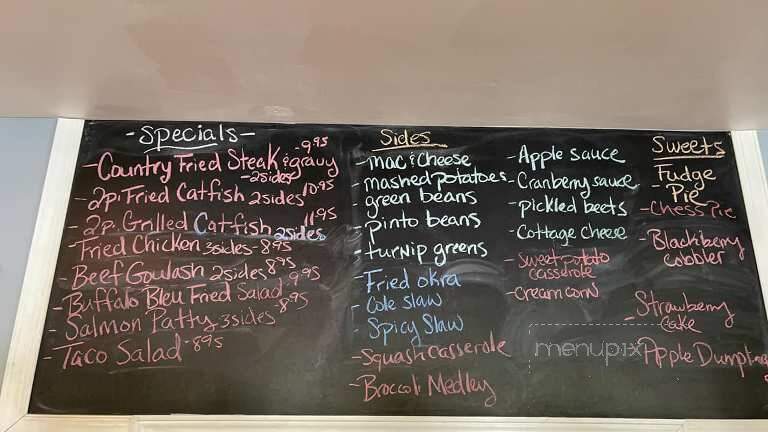 -Specials-
-Country Fried Steak & gravy -9.95
-2sides
-2p. Fried Catfish 2sides 10.95
-2p. Grilled Catfish 2sides 11.95
-Fried Chicken 3sides-8.95
-Beef Goulash 2sides 8.95
-Buffalo Bleu Fried Salad 9.95
-Salmon Patty 3sides -8.95
-Taco Salad -8.95
Sides
-mac & cheese
-mashed potatoes
-green beans
-pinto beans
-turnip greens
-Fried okra
-Cole slaw
-Spicy Slaw
-Squash casserole
-Broccoli Medley
-Apple sauce
-Cranberry sauce
-pickled beets
-Cottage cheese
-sweet potato
casserole
-cream corn
Sweets
Fudge
-Pie
-Chess Pie
-Blackberry
cobbler
-Strawberry
cake
-Apple Dumplins
menupix